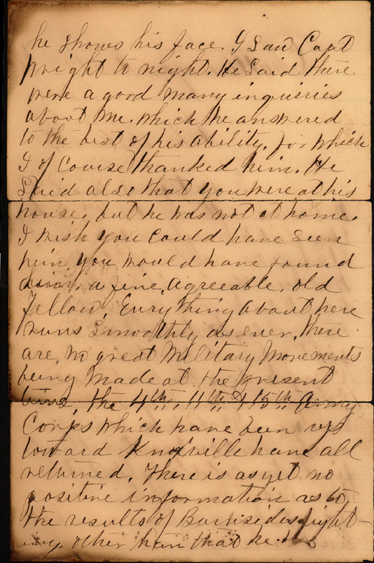 he shows his face. I saw Capt
Wright to night. He said there
were a good many inquiries
about me. which he answered
to the best of his ability, for which
I of Course thanked him. He
Said also that you were at his
house, but he was not at home.
I wish you could have seen
him you would have found
a fine, agreeable, old
fellow. Everything about here
runs Smoothly as ever, there
are, no great Military Movements
being made at the present
time, the 4th, 11th & 15th Army
Corps which have been up
toward Knoxville have all
returned. There is as yet no
positive information as to
the results of fight-
ing. other than that he